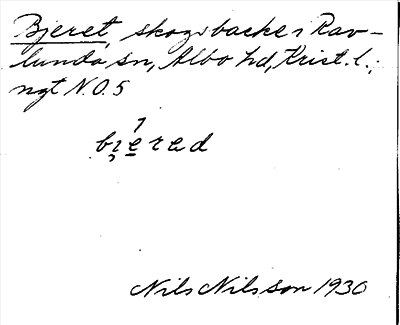 Bjeret, skogsbacke i Rav-
lunda sn, Albo hd, Krist. l.;
ngt N.O. 5
bi̯ered
Nils Nilsson 1930